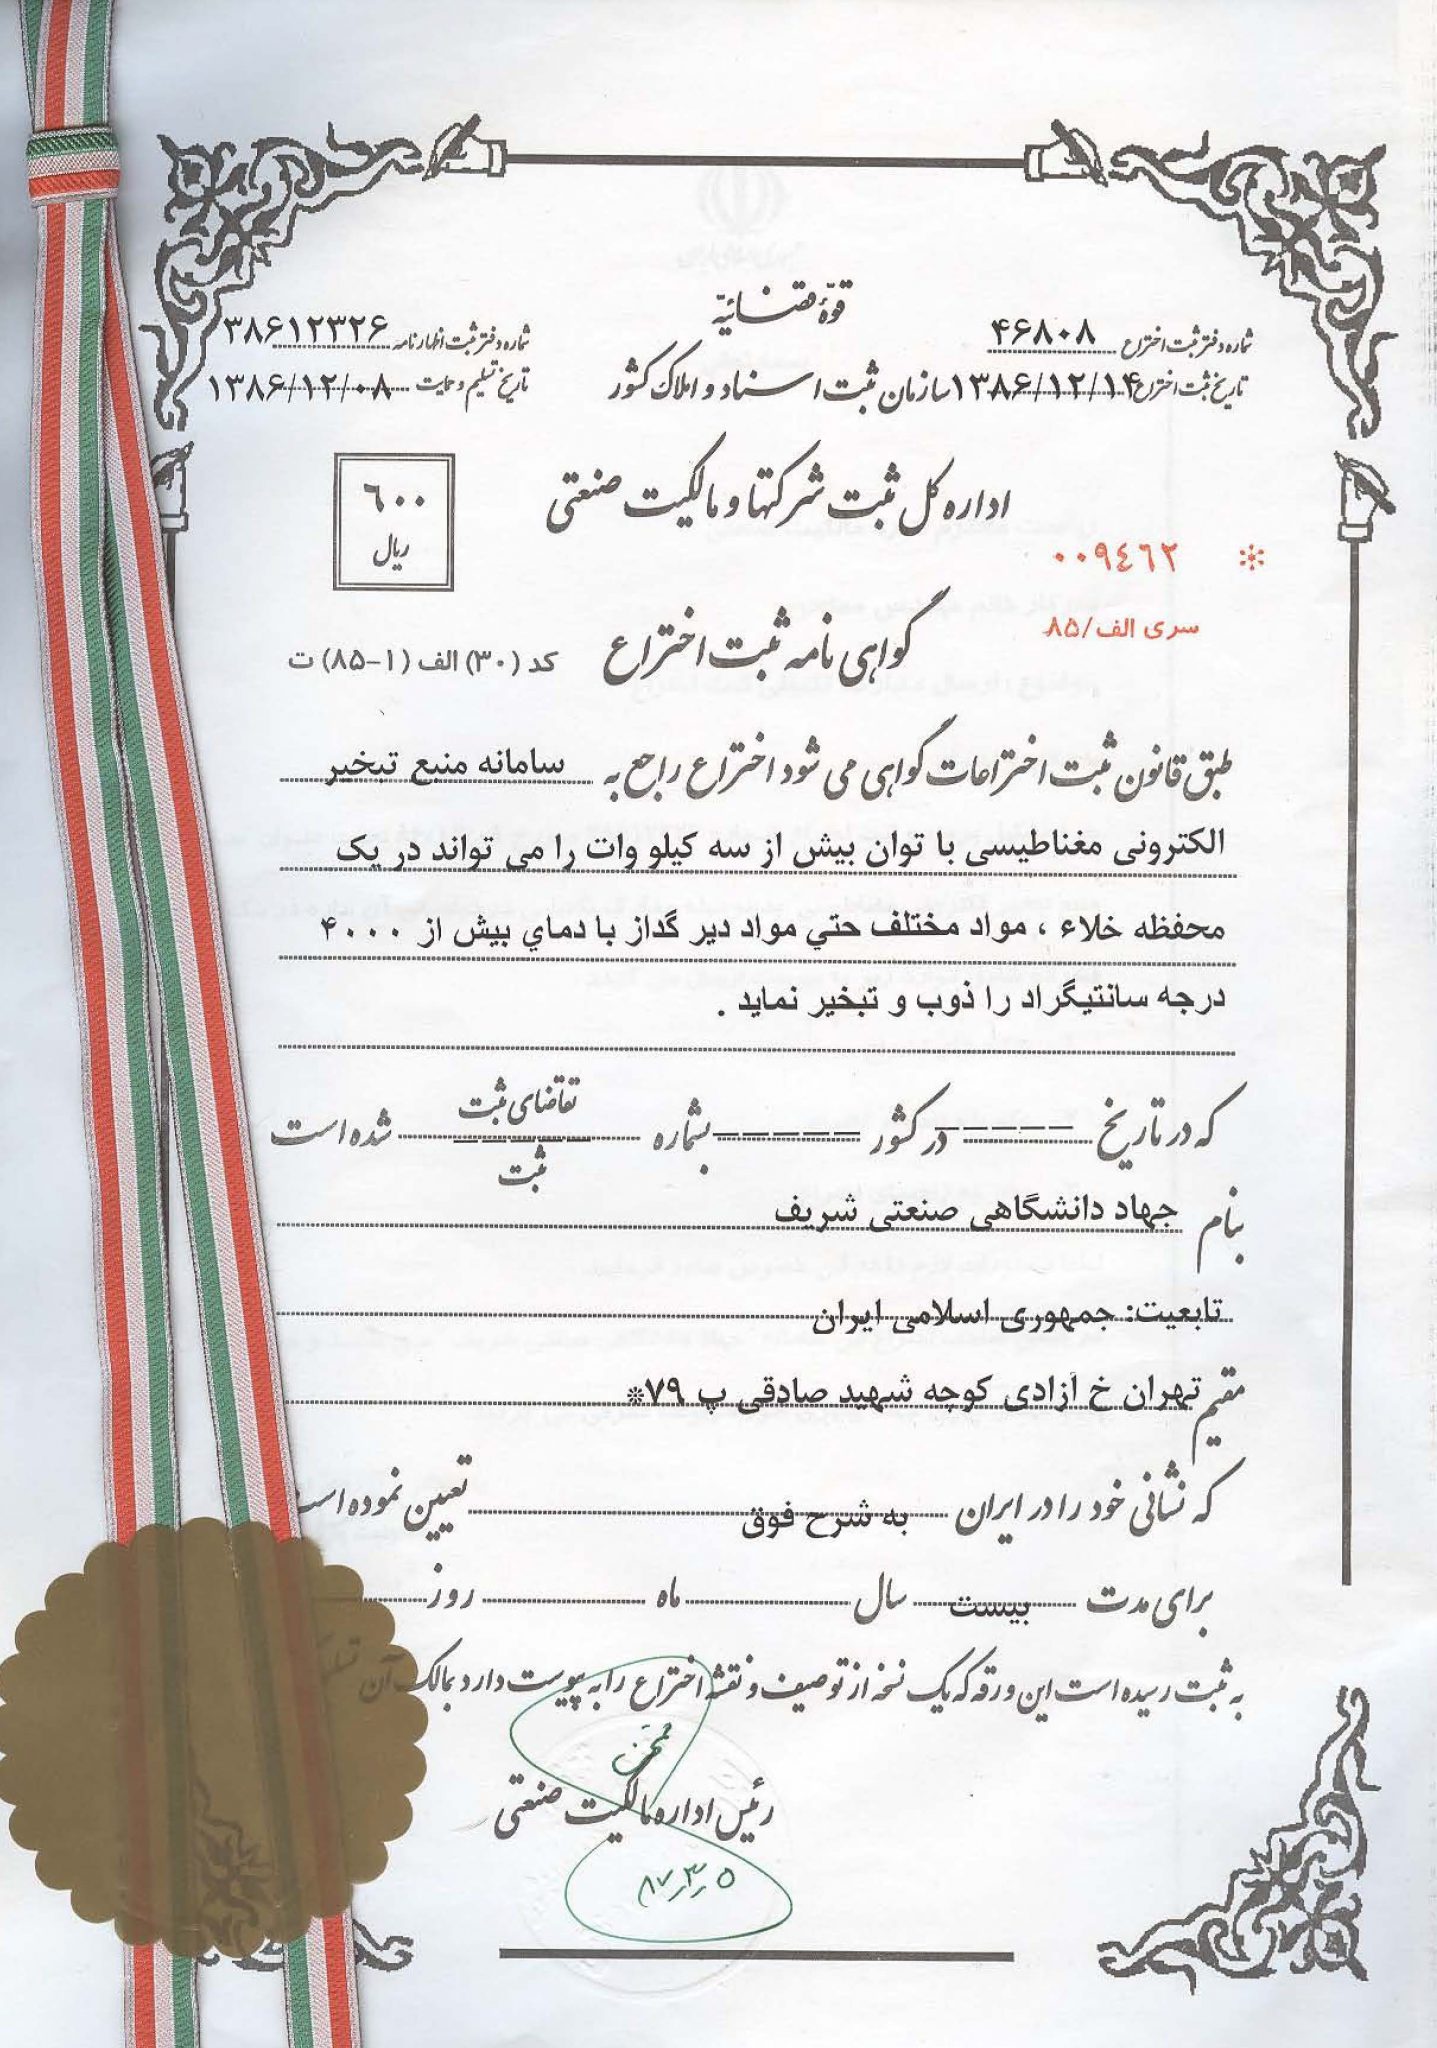 قوّهٔ قضائیّه
شماره دفتر ثبت اختراع ۴۶۸۰۸
شماره دفتر ثبت اظهارنامه ۳۸۶۱۲۳۲۶
تاریخ ثبت اختراع ۱۳۸۶/۱۲/۱۴
سازمان ثبت اسناد و املاک کشور
تاریخ تسلیم و حمایت ۱۳۸۶/۱۲/۰۸
اداره کل ثبت شرکتها و مالکیت صنعتی
۶۰۰
ریال
* ۰۰۹٤٦۲
سری الف/۸۵
گواهی نامه ثبت اختراع
کد (۳۰) الف (۱-۸۵) ت
طبق قانون ثبت اختراعات گواهی می شود اختراع راجع به سامانه منبع تبخیر
الکترونی مغناطیسی با توان بیش از سه کیلو وات را می تواند در یک
محفظه خلاء ، مواد مختلف حتي مواد دیر گداز با دمای بیش از ۴۰۰۰
درجه سانتیگراد را ذوب و تبخیر نماید .
که در تاریخ ------ در کشور ------ بشماره ------ تقاضای ثبت شده است
ثبت
بنام جهاد دانشگاهی صنعتی شریف
تابعیت: جمهوری اسلامی ایران
مقیم تهران خ آزادی کوچه شهید صادقی پ ۷۹*
که نشانی خود را در ایران به شرح فوق تعیین نموده است
برای مدت بیست سال ماه روز
به ثبت رسیده است این ورقه که یک نسخه از توصیف و نقشه اختراع را به پیوست دارد بمالک آن
رئیس اداره مالکیت صنعتی
۸۷٫۳٫۵